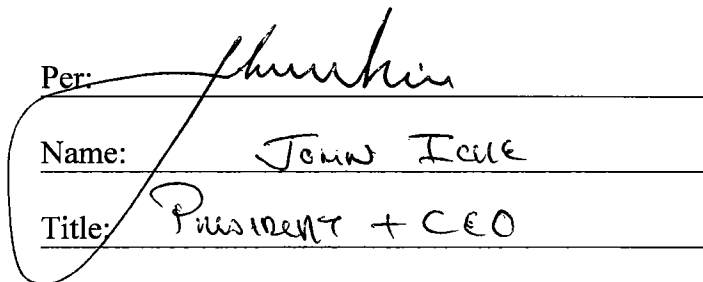 Per:
Name: John
Title: President + CEO